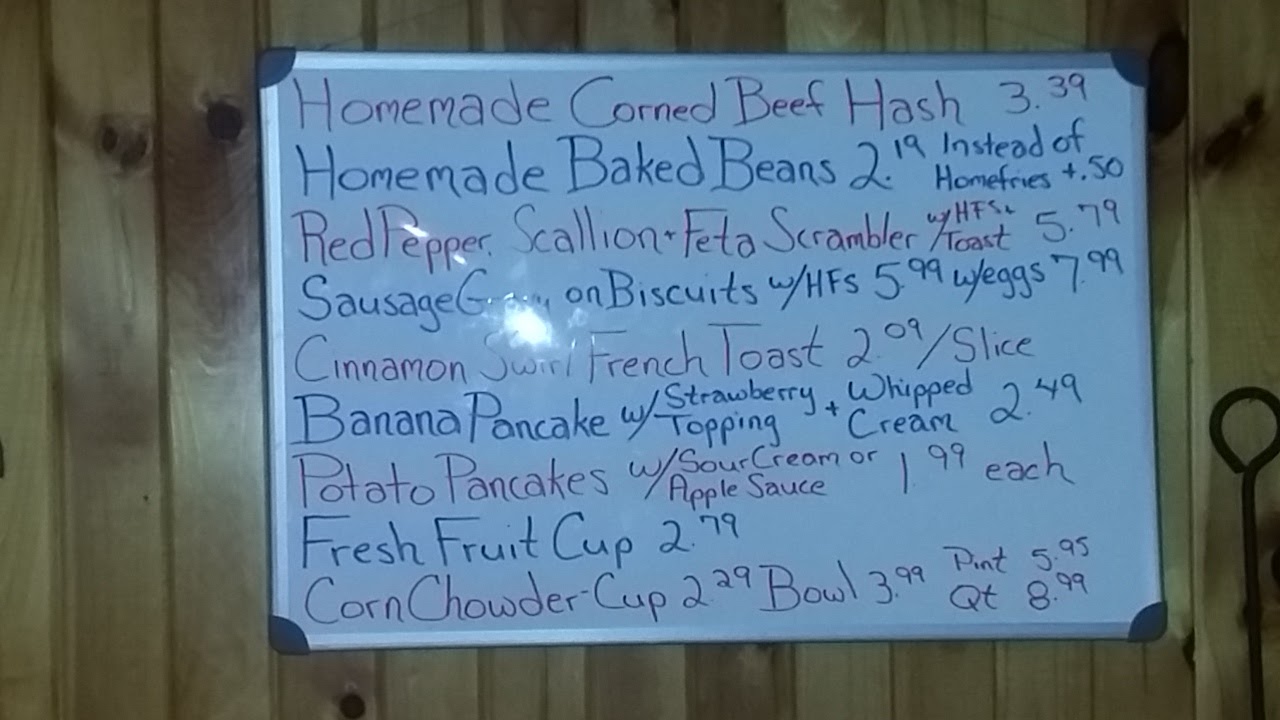 Homemade Corned Beef Hash 3.39
Homemade Baked Beans 2.19 Instead of Homefries +.50
Red Pepper, Scallion + Feta Scrambler w/HFs + Toast 5.79
Sausage on Biscuits w/HFs 5.99 w/eggs 7.99
Cinnamon Swirl French Toast 2.09/Slice
Banana Pancake w/Strawberry Topping + Whipped Cream 2.49
Potato Pancakes w/Sour Cream or Apple Sauce 1.99 each
Fresh Fruit Cup 2.79
Corn Chowder-Cup 2.29 Bowl 3.99 Pint 5.95 Qt 8.99